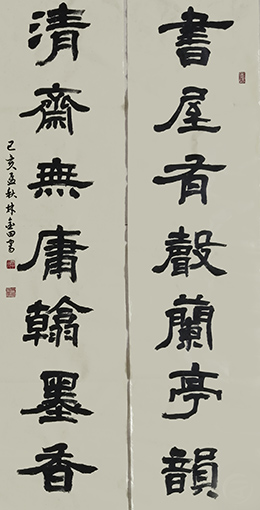 書屋有聲蘭亭韻
清齋無庸翰墨香
己亥孟秋林金田書